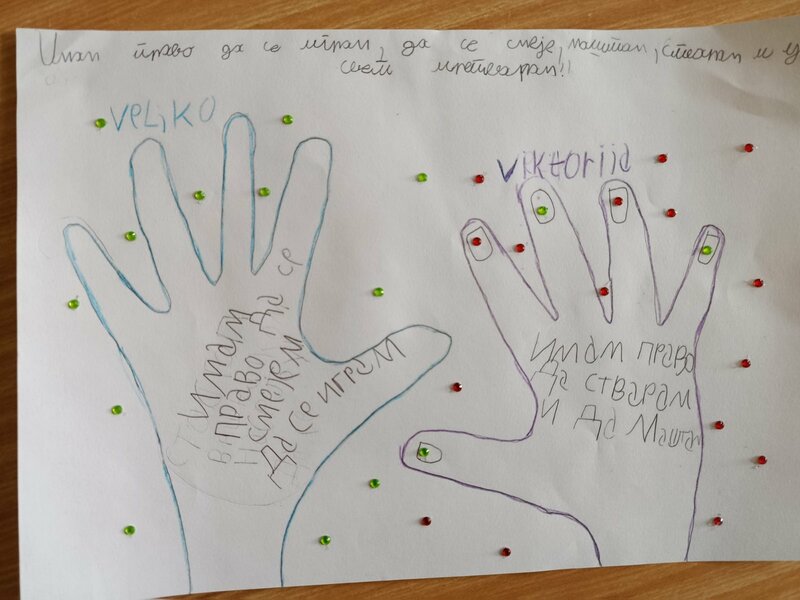 Имам право да се играм, да се смеје, маштам, стварам и у
свем претварам!!
VELIKO
Viktoriia
ИМАМ
ПРАВО ДА СЕ
СМЕЈЕМ
ДА СЕ ИГРАМ
Имам право
Да стварам
И Да Маштам